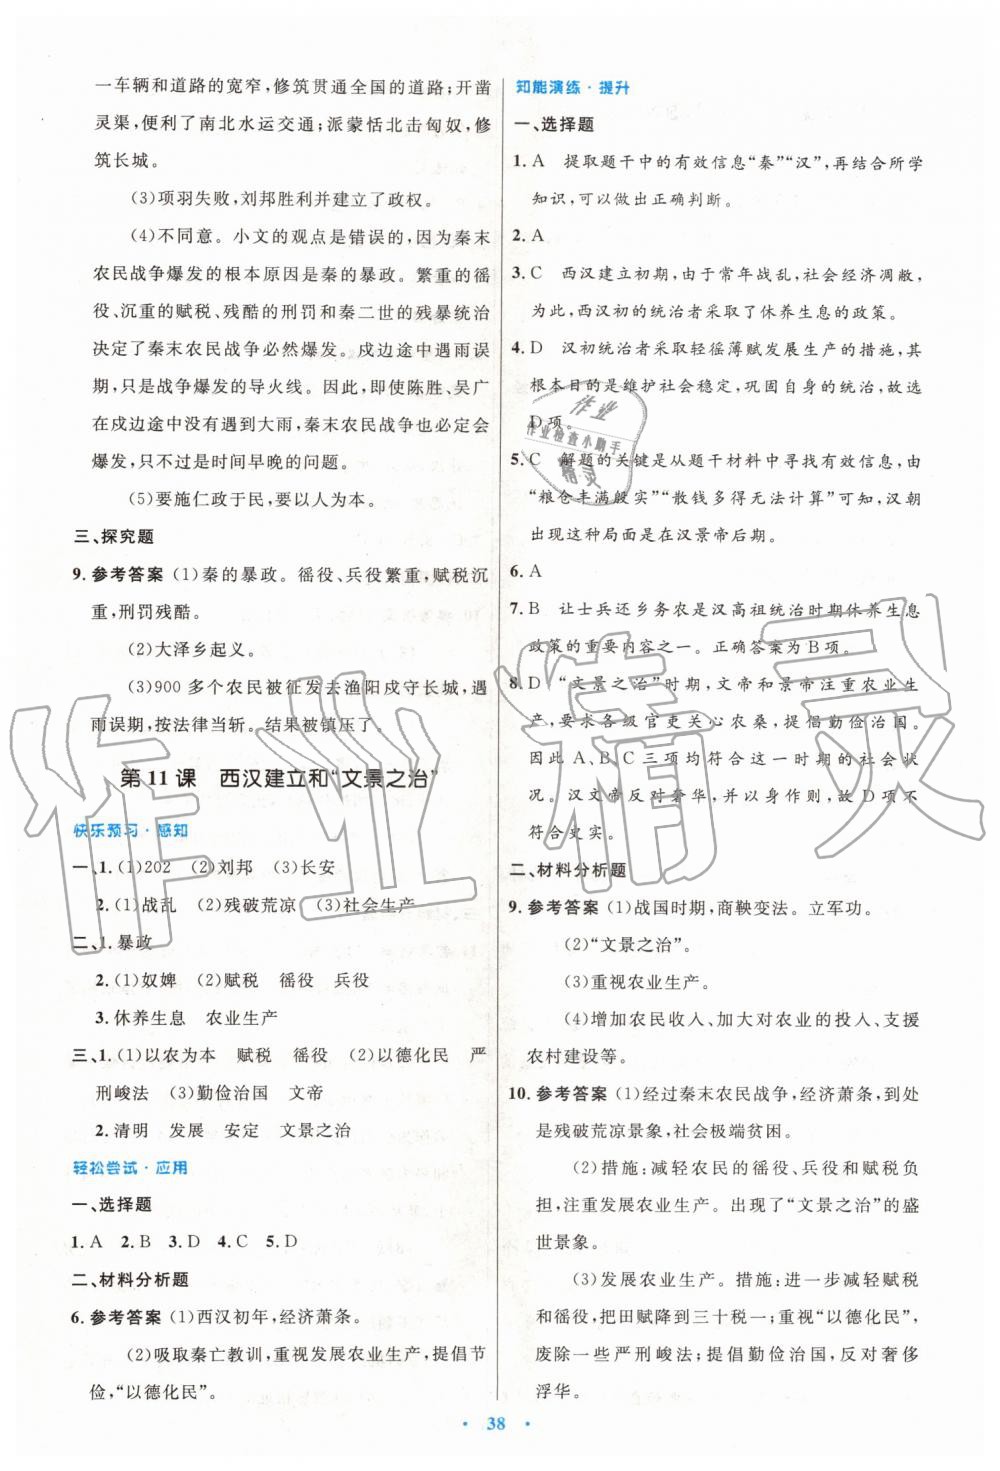 一车辆和道路的宽窄,修筑贯通全国的道路;开凿
灵渠,便利了南北水运交通;派蒙恬北击匈奴,修
筑长城。
(3)项羽失败,刘邦胜利并建立了政权。
(4)不同意。小文的观点是错误的,因为秦末
农民战争爆发的根本原因是秦的暴政。繁重的徭
役、沉重的赋税、残酷的刑罚和秦二世的残暴统治
决定了秦末农民战争必然爆发。戍边途中遇雨误
期,只是战争爆发的导火线。因此,即使陈胜、吴广
在戍边途中没有遇到大雨,秦末农民战争也必定会
爆发,只不过是时间早晚的问题。
(5)要施仁政于民,要以人为本。
三、探究题
9. 参考答案 (1)秦的暴政。徭役、兵役繁重,赋税沉
重,刑罚残酷。
(2)大泽乡起义。
(3)900多个农民被征发去渔阳戍守长城,遇
雨误期,按法律当斩。结果被镇压了。
第11课 西汉建立和“文景之治”
快乐预习·感知
一、1.(1)202 (2)刘邦 (3)长安
2.(1)战乱 (2)残破荒凉 (3)社会生产
二、1.暴政
2.(1)奴婢 (2)赋税 徭役 兵役
3.休养生息 农业生产
三、1.(1)以农为本 赋税 徭役 (2)以德化民 严
刑峻法 (3)勤俭治国 文帝
2.清明 发展 安定 文景之治
轻松尝试·应用
一、选择题
1. A 2. B 3. D 4. C 5. D
二、材料分析题
6. 参考答案 (1)西汉初年,经济萧条。
(2)吸取秦亡教训,重视发展农业生产,提倡节
俭,“以德化民”。
知能演练·提升
一、选择题
1. A 提取题干中的有效信息“秦”“汉”,再结合所学
知识,可以做出正确判断。
2. A
3. C 西汉建立初期,由于常年战乱,社会经济凋敝,
为此,西汉初的统治者采取了休养生息的政策。
4. D 汉初统治者采取轻徭薄赋发展生产的措施,其
根本目的是维护社会稳定,巩固自身的统治,故选
D项。
5. C 解题的关键是从题干材料中寻找有效信息,由
“粮仓丰满殷实”“散钱多得无法计算”可知,汉朝
出现这种局面是在汉景帝后期。
6. A
7. B 让士兵还乡务农是汉高祖统治时期休养生息
政策的重要内容之一。正确答案为B项。
8. D “文景之治”时期,文帝和景帝注重农业生
产,要求各级官吏关心农桑,提倡勤俭治国。
因此A、B、C三项均符合文景之治的历史状
况。汉文帝反对奢华,并以身作则,故D项不
符合史实。
二、材料分析题
9. 参考答案 (1)战国时期,商鞅变法。立军功。
(2)“文景之治”。
(3)重视农业生产。
(4)增加农民收入、加大对农业的投入、支援
农村建设等。
10. 参考答案 (1)经过秦末农民战争,经济萧条,到处
是残破荒凉景象,社会极端贫困。
(2)措施:减轻农民的徭役、兵役和赋税负
担,注重发展农业生产。出现了“文景之治”的盛
世景象。
(3)发展农业生产。措施:进一步减轻赋税
和徭役,把田赋降到三十税一;重视“以德化民”,
废除一些严刑峻法;提倡勤俭治国,反对奢侈
浮华。
38
作业精灵
作业
作业检查小助手
精灵